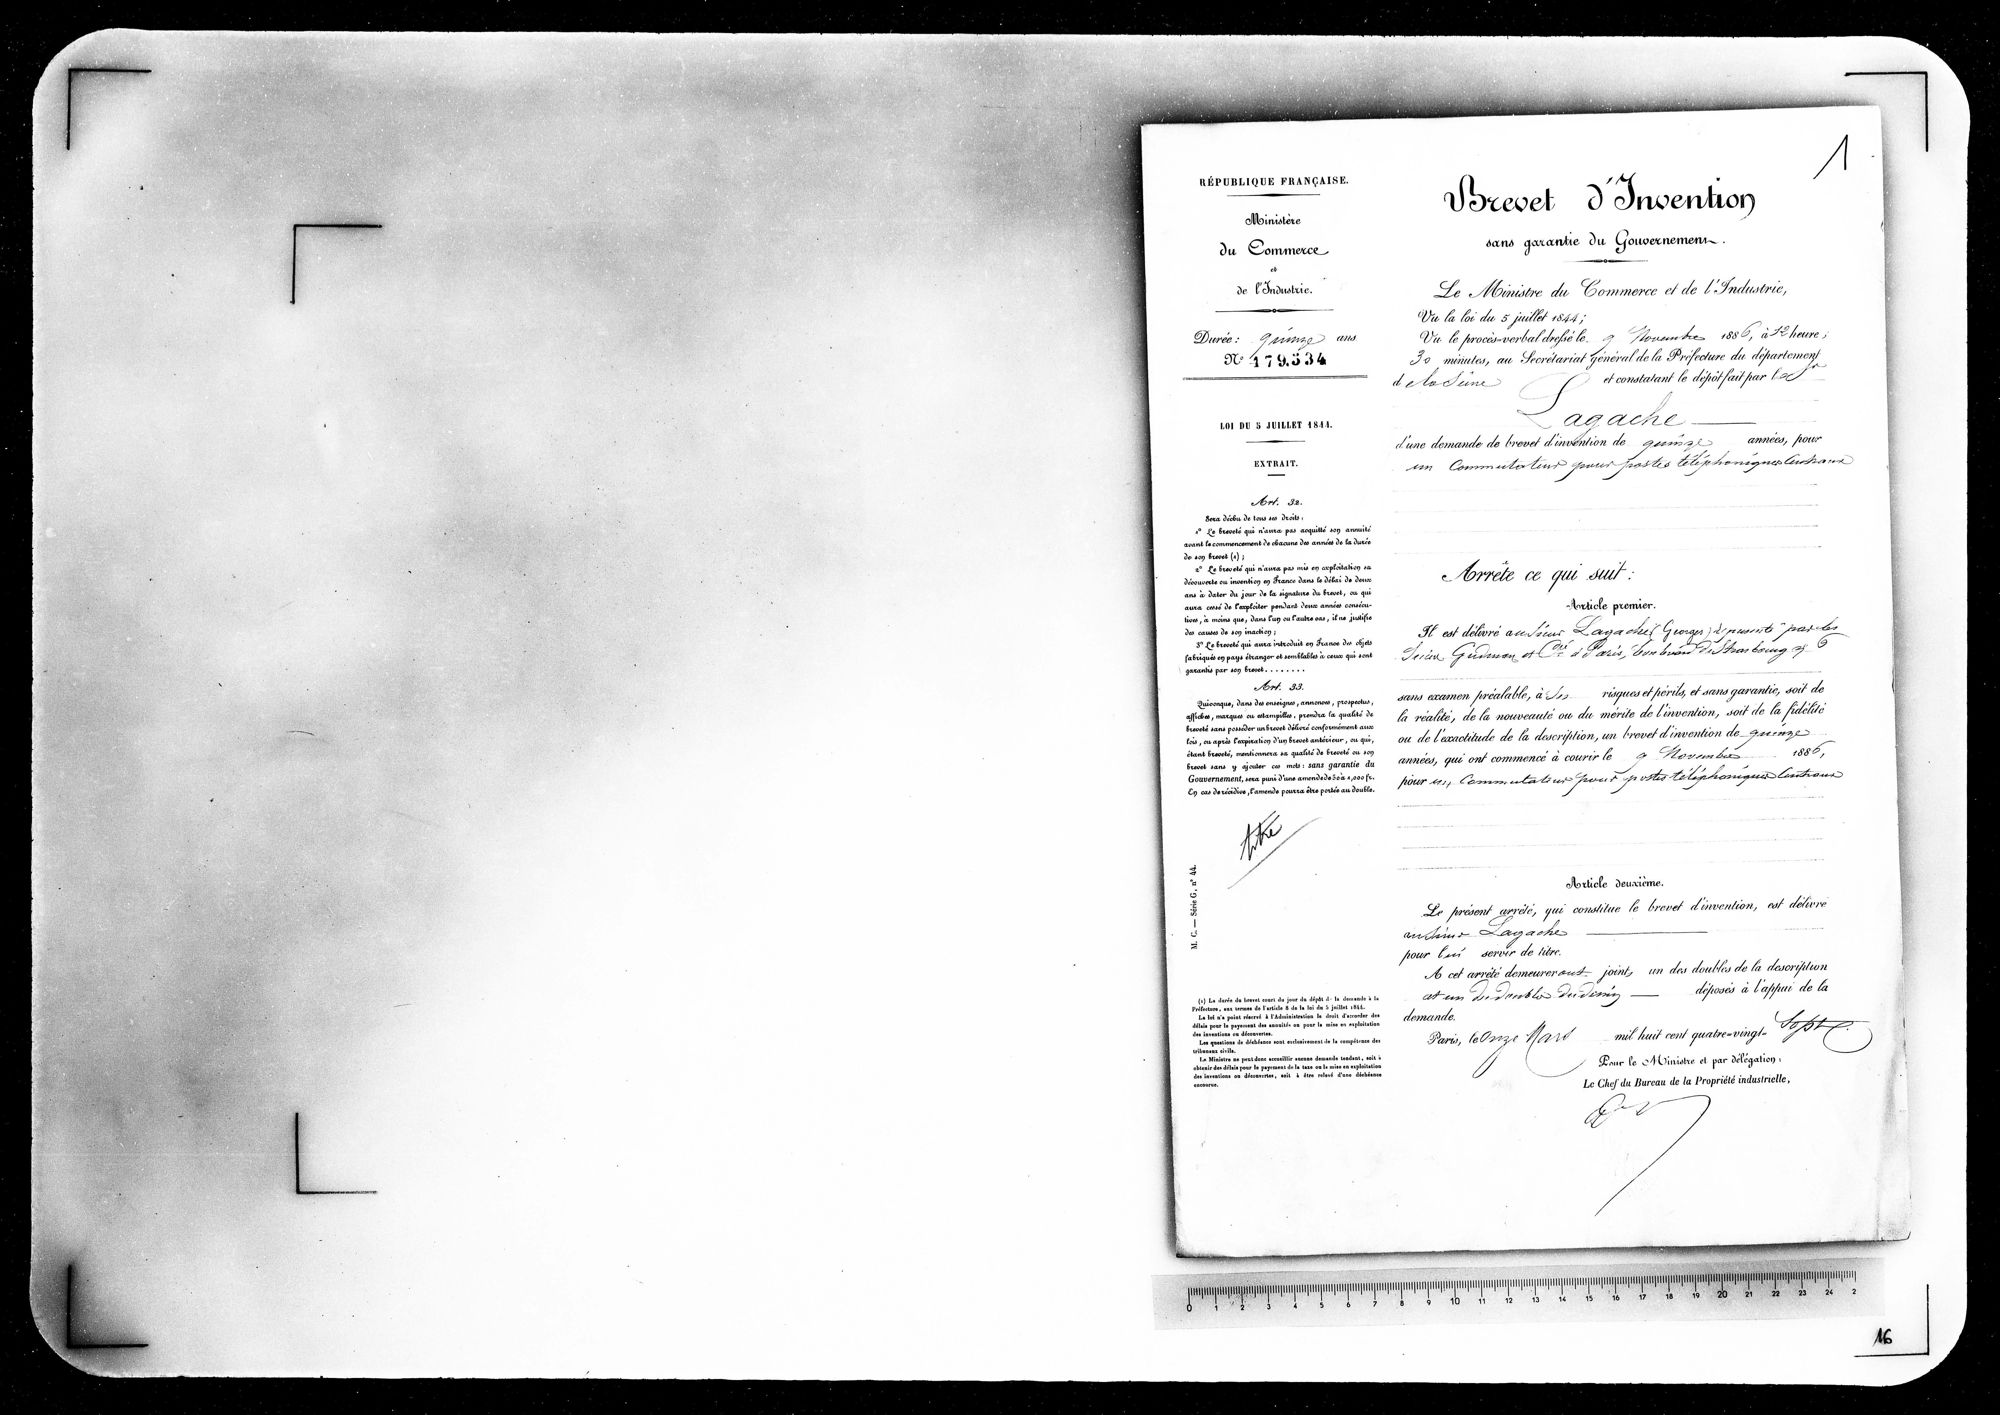 1
RÉPUBLIQUE FRANÇAISE.
Ministère
du Commerce
et
de l'Industrie.
Durée : quinze ans
N° 179.534
LOI DU 5 JUILLET 1844.
EXTRAIT.
Art. 32.
Sera déchu de tous ses droits :
1° Le breveté qui n'aura pas acquitté son annuité
avant le commencement de chacune des années de la durée
de son brevet (1) ;
2° Le breveté qui n'aura pas mis en exploitation sa
découverte ou invention en France dans le délai de deux
ans à dater du jour de la signature du brevet, ou qui
aura cessé de l'exploiter pendant deux années consécu-
tives, à moins que, dans l'un ou l'autre cas, il ne justifie
des causes de son inaction ;
3° Le breveté qui aura introduit en France des objets
fabriqués en pays étranger et semblables à ceux qui sont
garantis par son brevet........
Art. 33.
Quiconque, dans des enseignes, annonces, prospectus,
affiches, marques ou estampilles, prendra la qualité de
breveté sans posséder un brevet délivré conformément aux
lois, ou après l'expiration d'un brevet antérieur, ou qui,
étant breveté, mentionnera sa qualité de breveté ou son
brevet sans y ajouter ces mots : sans garantie du
Gouvernement, sera puni d'une amende de 50 à 1,000 fr.
En cas de récidive, l'amende pourra être portée au double.
titre
M. C. — Série G, n° 44.
(1) La durée du brevet court du jour du dépôt de la demande à la
Préfecture, aux termes de l'article 8 de la loi du 5 juillet 1844.
La loi n'a point réservé à l'Administration le droit d'accorder des
délais pour le payement des annuités ou pour la mise en exploitation
des inventions ou découvertes.
Les questions de déchéance sont exclusivement de la compétence des
tribunaux civils.
Le Ministre ne peut donc accueillir aucune demande tendant, soit à
obtenir des délais pour le payement de la taxe ou la mise en exploitation
des inventions ou découvertes, soit à être relevé d'une déchéance
encourue.
Brevet d'Invention
sans garantie du Gouvernement.
Le Ministre du Commerce et de l'Industrie,
Vu la loi du 5 juillet 1844 ;
Vu le procès-verbal dressé le 9 Novembre 1886, à 12 heure ;
30 minutes, au Secrétariat général de la Préfecture du département
de la Seine et constatant le dépôt fait par le Sr
Lagache
d'une demande de brevet d'invention de quinze années, pour
un Commutateur pour postes téléphoniques Centraux
Arrête ce qui suit :
Article premier.
Il est délivré au Sieur Lagache (Georges) représenté par les
Sieurs et Cie à Paris, boulevard de Strasbourg
sans examen préalable, à ses risques et périls, et sans garantie, soit de
la réalité, de la nouveauté ou du mérite de l'invention, soit de la fidélité
ou de l'exactitude de la description, un brevet d'invention de quinze
années, qui ont commencé à courir le 9 Novembre 1886,
pour un Commutateur pour postes téléphoniques Centraux
Article deuxième.
Le présent arrêté, qui constitue le brevet d'invention, est délivré
au Sieur Lagache
pour lui servir de titre.
A cet arrêté demeureront joints un des doubles de la description
et un des doubles du dessin déposés à l'appui de la
demande.
Paris, le Onze Mars mil huit cent quatre-vingt-Sept.
Pour le Ministre et par délégation :
Le Chef du Bureau de la Propriété industrielle,
0 1 2 3 4 5 6 7 8 9 10 11 12 13 14 15 16 17 18 19 20 21 22 23 24 2
16